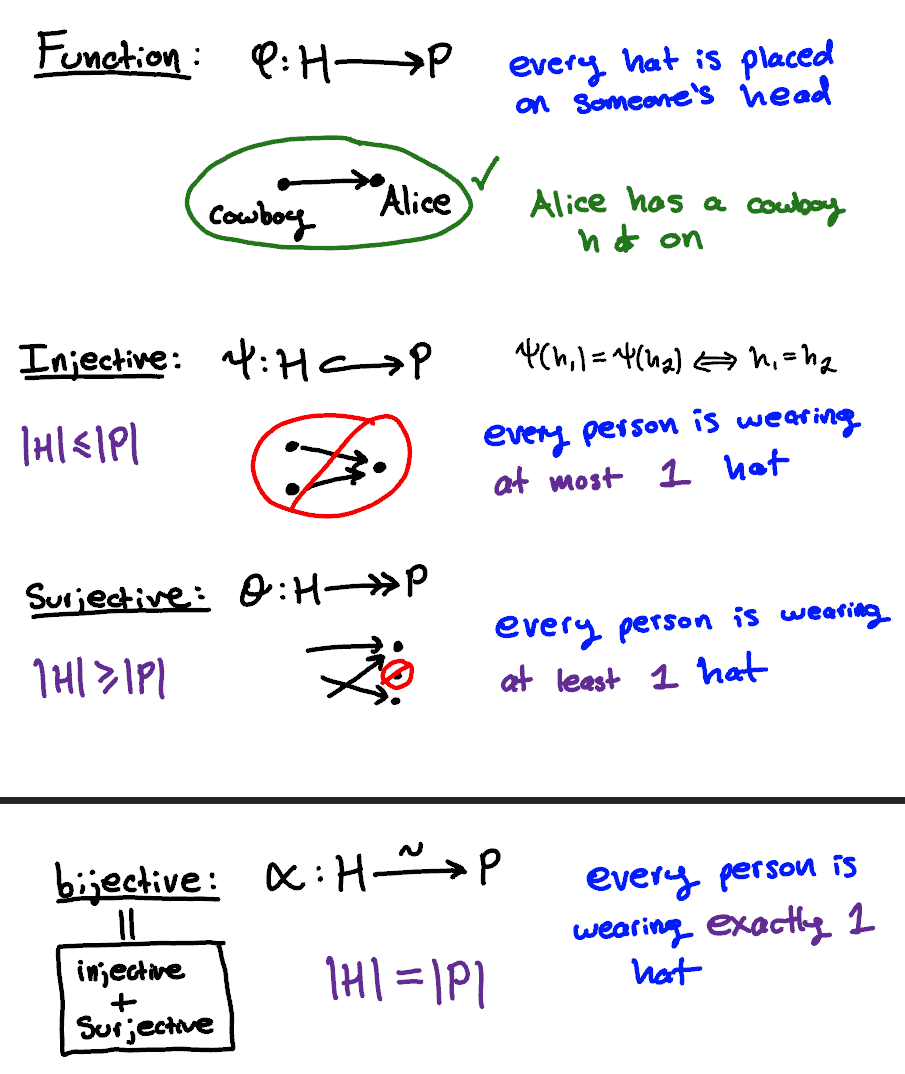 Function: φ: H ⟶ P
every hat is placed
on someone's head
Cowboy Alice
Alice has a cowboy
hat on
Injective: Ψ: H ↪ P
Ψ(h₁) = Ψ(h₂) ⟺ h₁ = h₂
|H| ≤ |P|
every person is wearing
at most 1 hat
Surjective: θ: H ↠ P
|H| ≥ |P|
every person is wearing
at least 1 hat
bijective: α: H ⥲ P
every person is
wearing exactly 1
hat
||
injective
+
Surjective
|H| = |P|